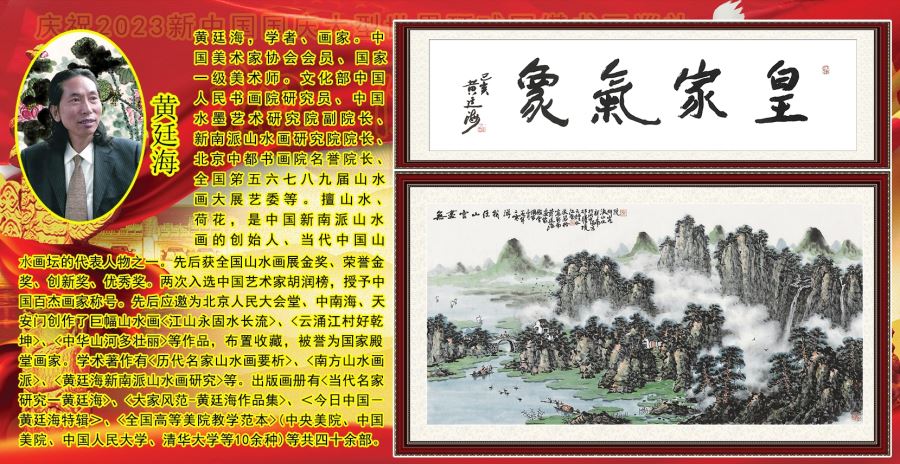 庆祝2023新中国国庆大型世界
黄廷海
黄廷海，学者、画家。中
国美术家协会会员、国家
一级美术师。文化部中国
人民书画院研究员、中国
水墨艺术研究院副院长、
新南派山水画研究院院长、
北京中都书画院名誉院长、
全国第五六七八九届山水
画大展艺委等。擅山水、
荷花，是中国新南派山水
画的创始人、当代中国山
水画坛的代表人物之一。先后获全国山水画展金奖、荣誉金
奖、创新奖、优秀奖。两次入选中国艺术家胡润榜，授予中
国百杰画家称号。先后应邀为北京人民大会堂、中南海、天
安门创作了巨幅山水画<江山永固水长流>、<云涌江村好乾
坤>、<中华山河多壮丽>等作品，布置收藏，被誉为国家殿
堂画家。学术著作有<历代名家山水画要析>、<南方山水画
派>、<黄廷海新南派山水画研究>等。出版画册有<当代名家
研究一黄廷海>、<大家风范-黄廷海作品集>、<今日中国一
黄廷海特辑>、<全国高等美院教学范本>(中央美院、中国
美院、中国人民大学、清华大学等10余种)等共四十余部。
皇家氣象
己亥
黄廷海